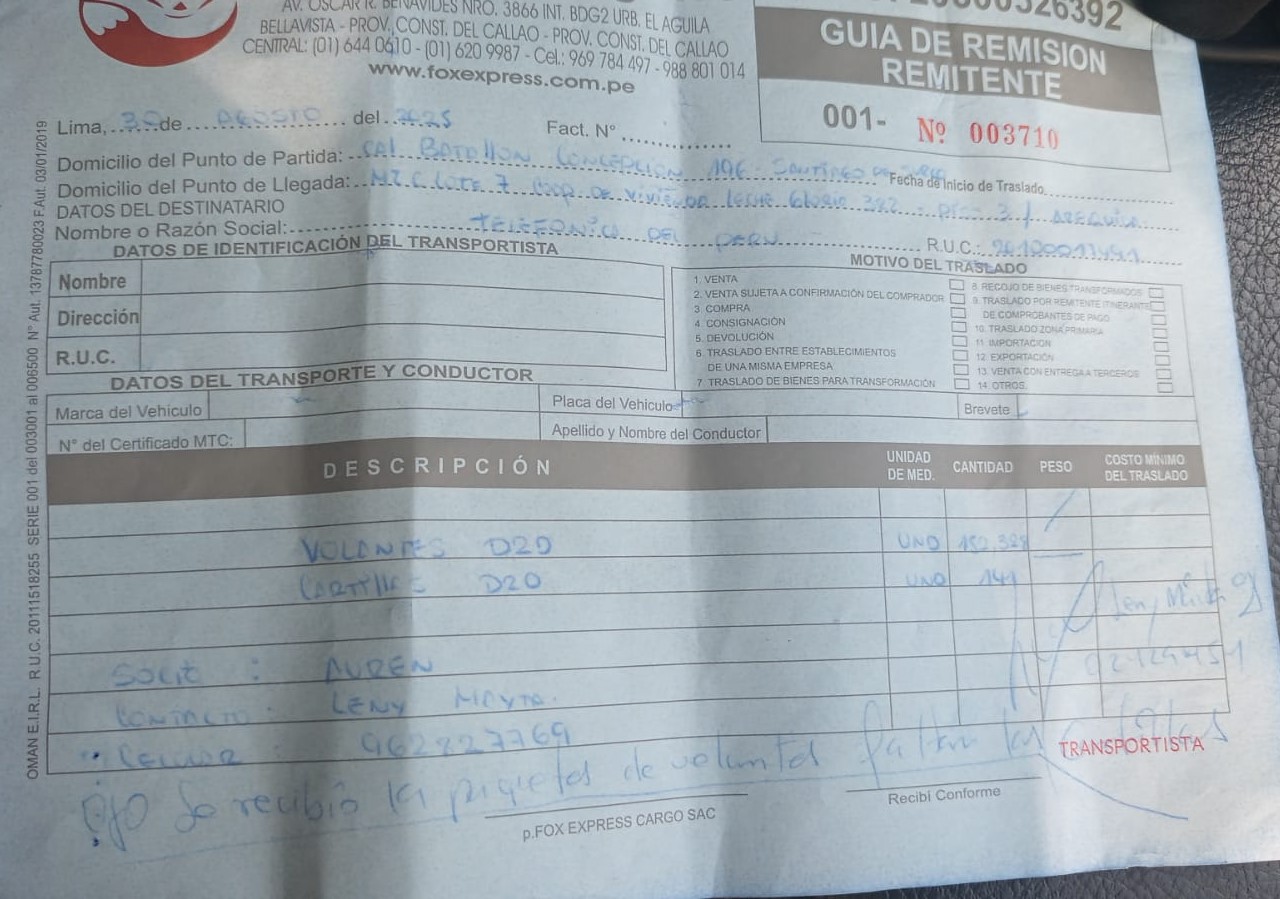 AV. OSCAR R. BENAVIDES NRO. 3866 INT. BDG2 URB. EL AGUILA
BELLAVISTA - PROV. CONST. DEL CALLAO - PROV. CONST. DEL CALLAO
CENTRAL: (01) 644 0610 - (01) 620 9987 - Cel.: 969 784 497 - 988 801 014
www.foxexpress.com.pe
GUIA DE REMISION
REMITENTE
001- Nº 003710
Lima, 30 de AGOSTO del 2025 Fact. N°
Domicilio del Punto de Partida: CAL BATALLON CONCEPCION 196 - SANTIAGO DE SURCO Fecha de Inicio de Traslado
Domicilio del Punto de Llegada: MZ C LOTE 7 COOP. DE VIVIENDA LECHE GLORIA 382 - PISO 3 / AREQUIPA
DATOS DEL DESTINATARIO
Nombre o Razón Social: TELEFONICA DEL PERU R.U.C.: 20100017491
DATOS DE IDENTIFICACIÓN DEL TRANSPORTISTA
Nombre
Dirección
R.U.C.
MOTIVO DEL TRASLADO
1. VENTA
2. VENTA SUJETA A CONFIRMACIÓN DEL COMPRADOR
3. COMPRA
4. CONSIGNACIÓN
5. DEVOLUCIÓN
6. TRASLADO ENTRE ESTABLECIMIENTOS
DE UNA MISMA EMPRESA
7. TRASLADO DE BIENES PARA TRANSFORMACIÓN
8. RECOJO DE BIENES TRANSFORMADOS
9. TRASLADO POR REMITENTE ITINERANTE
DE COMPROBANTES DE PAGO
10. TRASLADO ZONA PRIMARIA
11. IMPORTACION
12. EXPORTACIÓN
13. VENTA CON ENTREGA A TERCEROS
14. OTROS
DATOS DEL TRANSPORTE Y CONDUCTOR
Marca del Vehiculo Placa del Vehiculo Brevete
N° del Certificado MTC: Apellido y Nombre del Conductor
DESCRIPCIÓN UNIDAD DE MED. CANTIDAD PESO COSTO MÍNIMO DEL TRASLADO
VOLANTES D2D UND 152.328
CARTILLAS D2D UND 141
SOLIT : AUREN
CONTACTO : LENY MAYTA.
CELULAR : 962227769
OJO Se recibio la paquetes de volantes faltan las
TRANSPORTISTA
p.FOX EXPRESS CARGO SAC
Recibi Conforme
OMAN E.I.R.L. R.U.C. 20111518255 SERIE 001 del 003001 al 006500 N° Aut. 13787780023 F.Aut. 03/01/2019